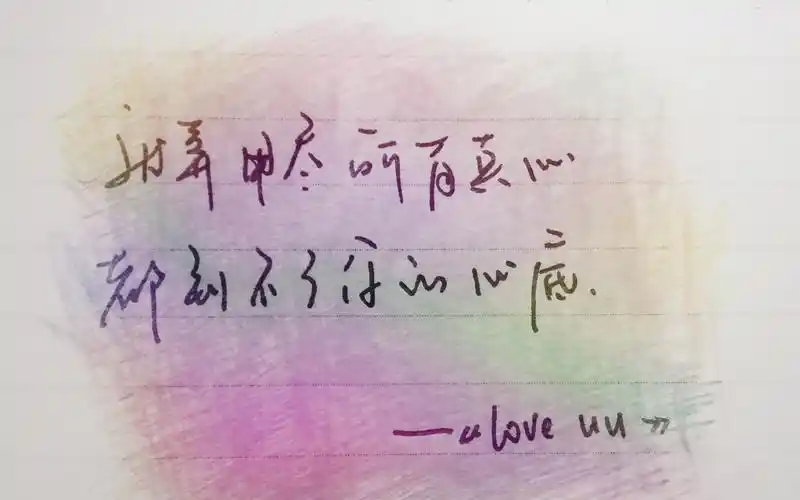 就算用尽所有真心
都到不了你的心底.
——《love uu》